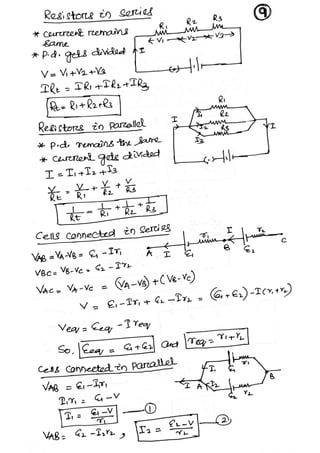 Resistors in Series
9
* current remains same
* P.d. gets divided
R1 R2 R3
V1 V2 V3
I
V = V1 + V2 + V3
IRt = IR1 + IR2 + IR3
Rt = R1 + R2 + R3
Resistors in Parallel
* P.d. remains the same
* current gets divided
R1
R2
R3
I I1 I2 I3 I
I = I1 + I2 + I3
V/Rt = V/R1 + V/R2 + V/R3
1/Rt = 1/R1 + 1/R2 + 1/R3
Cells connected in series
VAB = VA - VB = ε1 - Ir1
VBC = VB - VC = ε2 - Ir2
A I ε1 r1 B I ε2 r2 C
VAC = VA - VC = (VA - VB) + (VB - VC)
V = ε1 - Ir1 + ε2 - Ir2 = (ε1 + ε2) - I(r1 + r2)
Veq = εeq - Ireq
So, εeq = ε1 + ε2 and req = r1 + r2
Cells Connected in Parallel
VAB = ε1 - I1r1
I1r1 = ε1 - V
I1 = ε1 - V / r1 1
I A I1 I2 ε1 r1 ε2 r2 B
VAB = ε2 - I2r2 , I2 = ε2 - V / r2 2